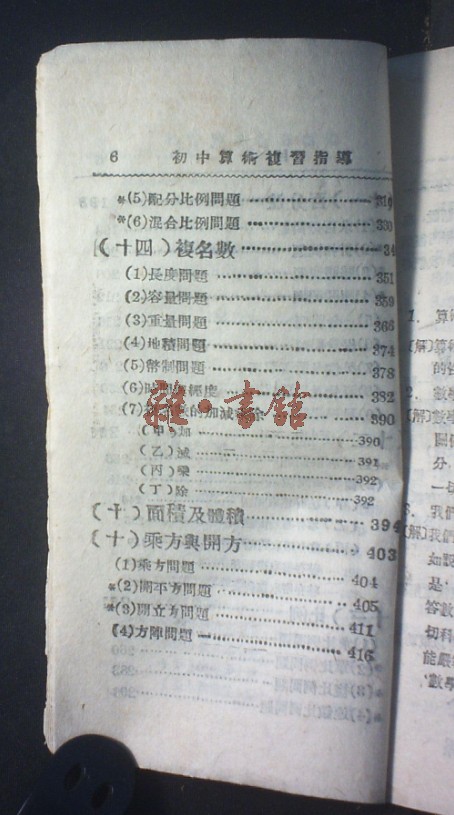 6 初中算術複習指導
*(5)配分比例問題 319
*(6)混合比例問題 330
(十四)複名數 34
(1)長度問題 351
(2)容量問題 359
(3)重量問題 366
(4)地積問題 374
(5)幣制問題 378
(6)時間 382
(7) 的加減 除 390
(甲)加 390
(乙)減 391
(丙)乘 392
(丁)除 392
(十)面積及體積 394
(十)乘方與開方 403
(1)乘方問題 404
*(2)開平方問題 405
*(3)開立方問題 411
(4)方陣問題 416
雜·書館
1. 算
(解)算術
的
2. 數學
(解)數學
關係
分，
一切
3. 我們
(解)我們
如
是·
答數
切科
能
數學